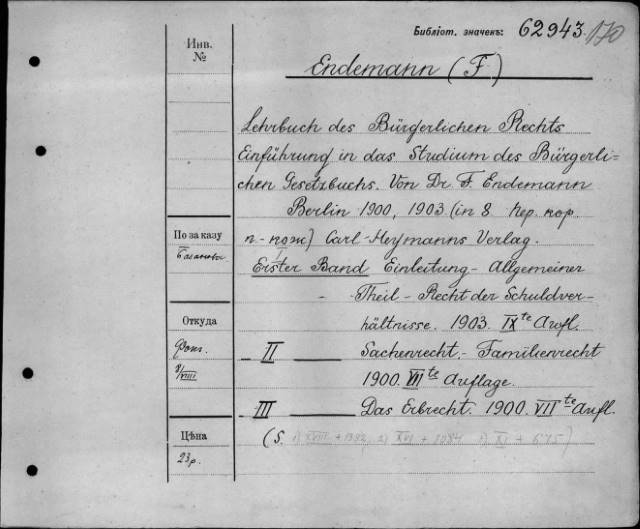 Библіот. значекъ: 62943. 170
Инв.
№
Endemann (F.)
Lehrbuch des Bürgerlichen Rechts
Einführung in das Studium des Bürgerli=
chen Gesetzbuchs. Von Dr. F. Endemann
Berlin 1900, 1903. (in 8. пер. кор.
п.-кож.) Carl-Heymanns Verlag.
По заказу
Erster Band Einleitung - Allgemeiner
I
- Theil - Recht der Schuldver-
hältnisse. 1903. IXte Aufl.
Откуда
- II — Sachenrecht. - Familienrecht
1900. VIIte Auflage.
- III — Das Erbrecht. 1900. VIIte Aufl.
Цѣна
(S. 1) XVIII + 1392, 2) XVI + 1084 3) XI + 675)
23 р.